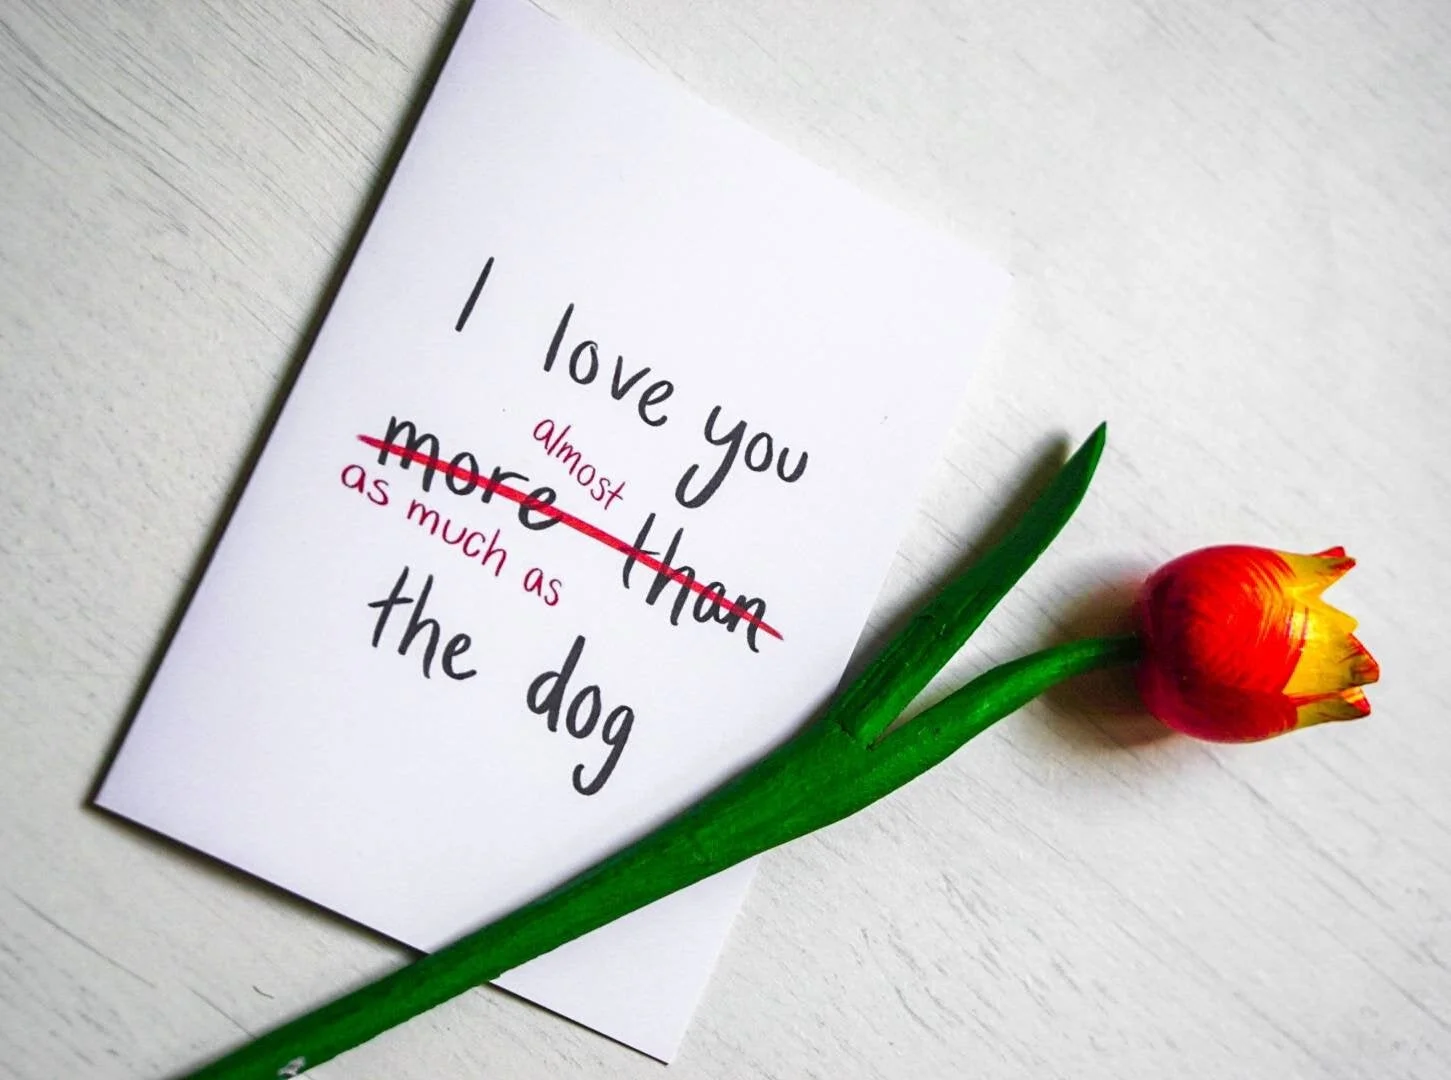 I love you
almost
more than
as much as
the dog